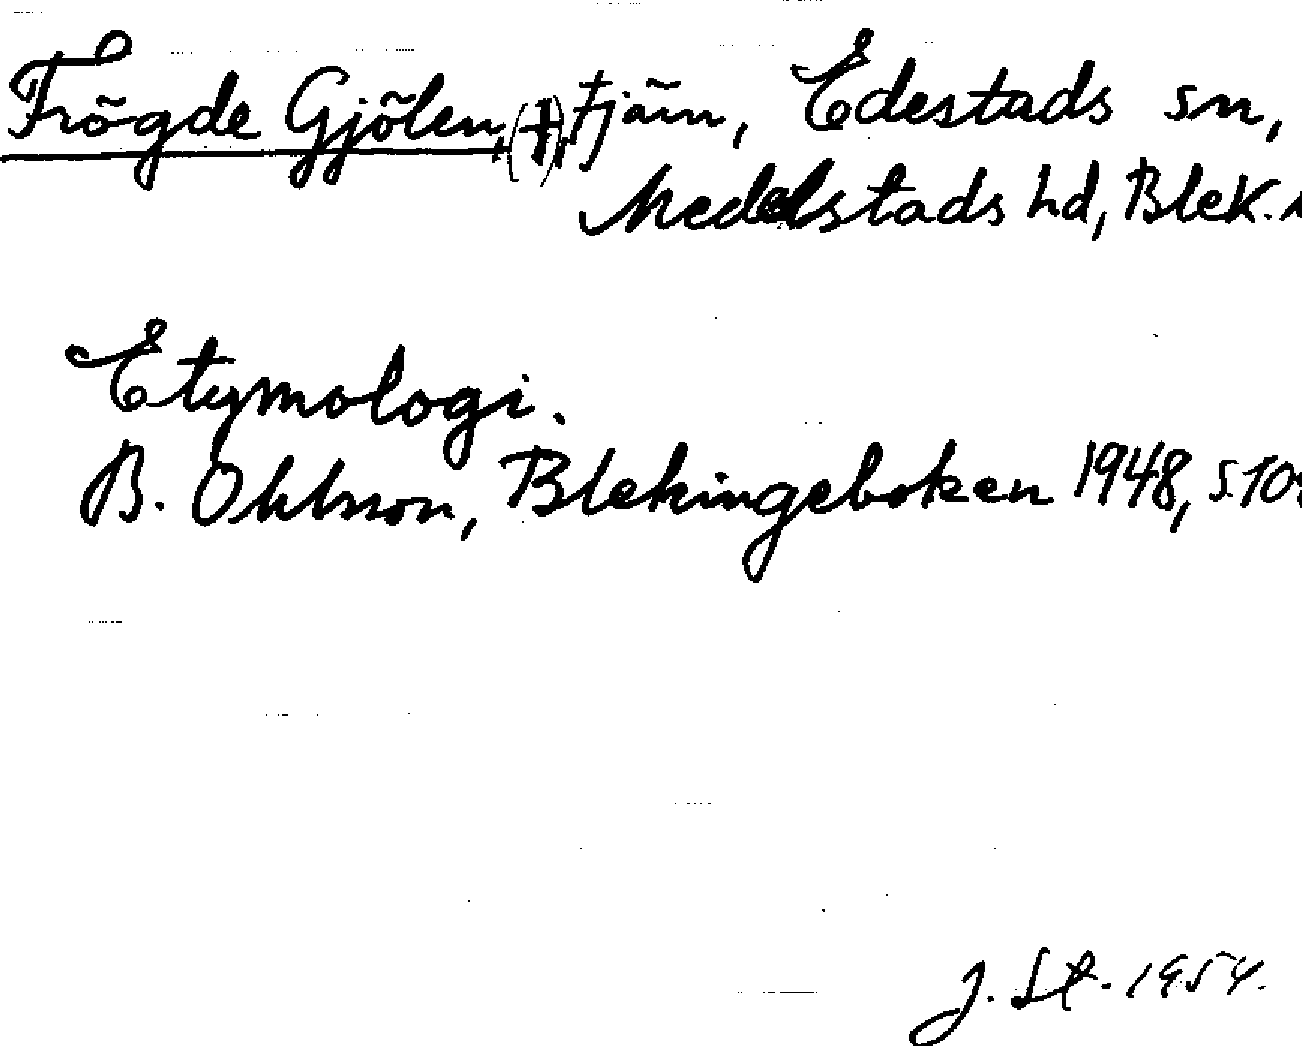 Frögde Gjölen, (†), tjärn, Edestads sn,
Medelstads hd, Blek.
Etymologi.
B. Ohlsson, Blekingeboken 1948, s.
J. St. 1954.